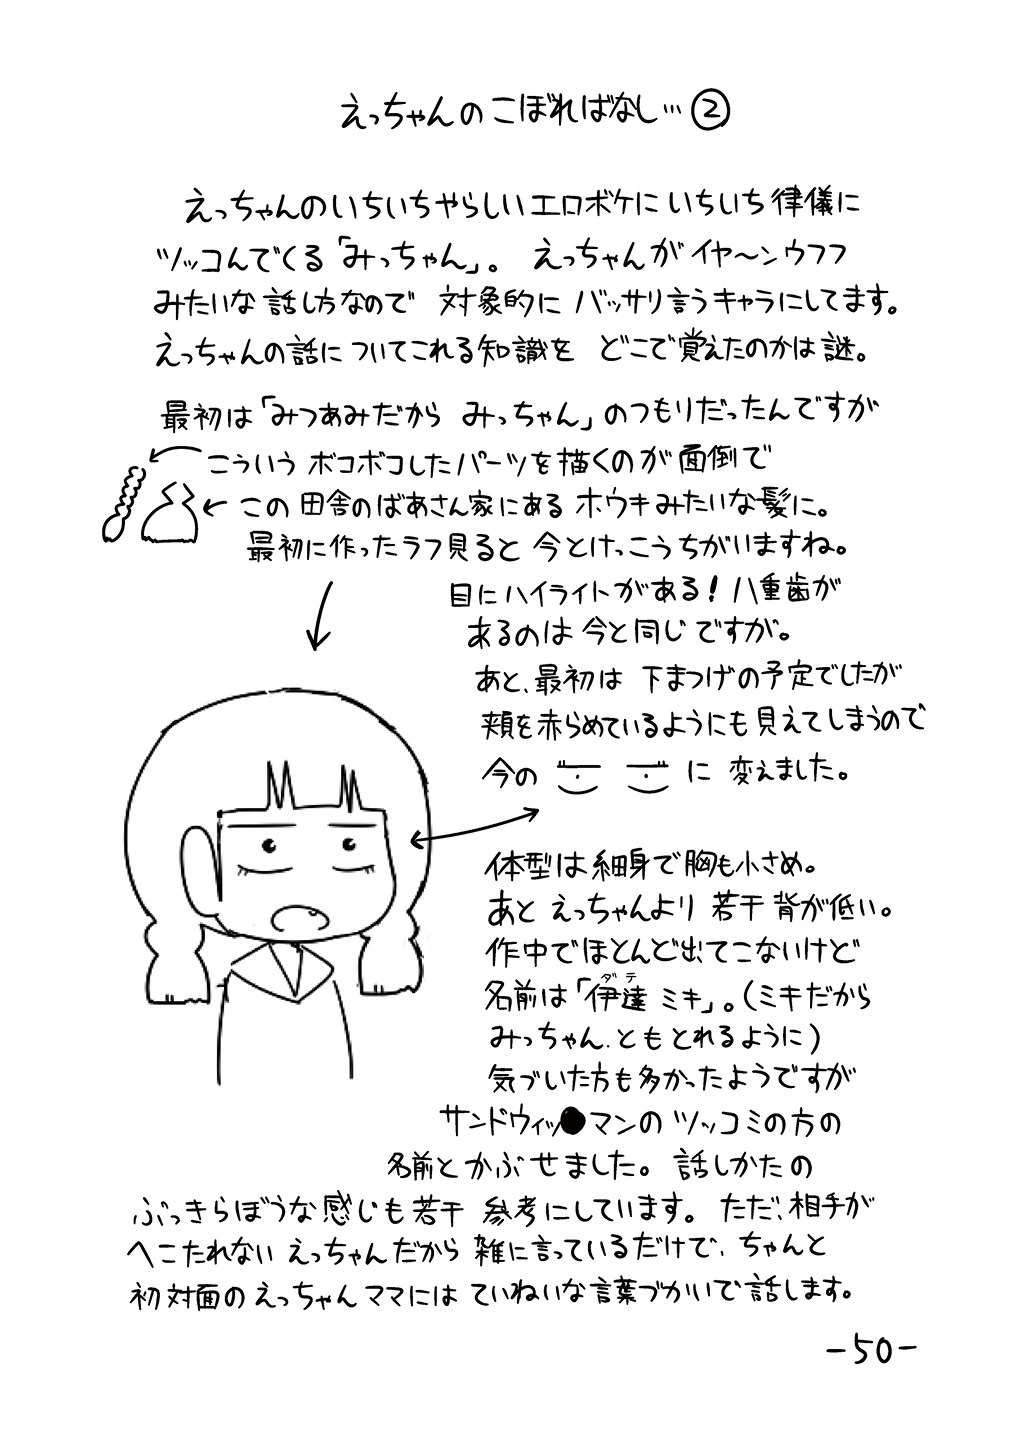 えっちゃんのこぼればなし…②
えっちゃんのいちいちやらしいエロボケにいちいち律儀に
ツッコんでくる「みっちゃん」。えっちゃんがイヤ〜ンウフフ
みたいな話し方なので 対象的に バッサリ言うキャラにしてます。
えっちゃんの話についてこれる知識を どこで覚えたのかは謎。
最初は「みつあみだから みっちゃん」のつもりだったんですが
こういう ボコボコしたパーツを描くのが面倒で
この田舎のばあさん家にある ホウキみたいな髪に。
最初に作ったラフ見ると 今とけっこうちがいますね。
目にハイライトがある!八重歯が
あるのは今と同じですが。
あと、最初は 下まつげの予定でしたが
頬を赤らめているようにも見えてしまうので
今の に 変えました。
体型は細身で胸も小さめ。
あと えっちゃんより 若干 背が低い。
作中でほとんど出てこないけど
名前は「伊達 ミキ」。(ミキだから
ダテ
みっちゃん、ともとれるように)
気づいた方も多かったようですが
サンドウィッ●マンの ツッコミの方の
名前と かぶせました。 話しかたの
ぶっきらぼうな感じも若干 参考にしています。ただ、相手が
へこたれない えっちゃんだから 雑に言っているだけで、ちゃんと
初対面の えっちゃんママには ていねいな言葉づかいで話します。
-50-